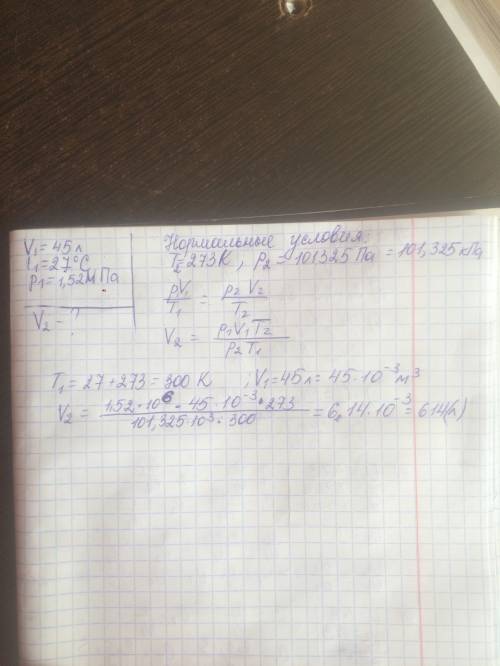 V₁ = 45 л
t₁ = 27°C
p₁ = 1,52 МПа
V₂ = ?
Нормальные условия:
T₂ = 273K, p₂ = 101325 Па = 101,325 кПа
p₁V₁/T₁ = p₂V₂/T₂
V₂ = p₁V₁T₂/p₂T₁
T₁ = 27 + 273 = 300 K ; V₁ = 45 л = 45 · 10⁻³ м³
V₂ = 1,52 · 10⁶ · 45 · 10⁻³ · 273 / 101,325 · 10³ · 300 = 6,14 · 10⁻³ = 614 (л)